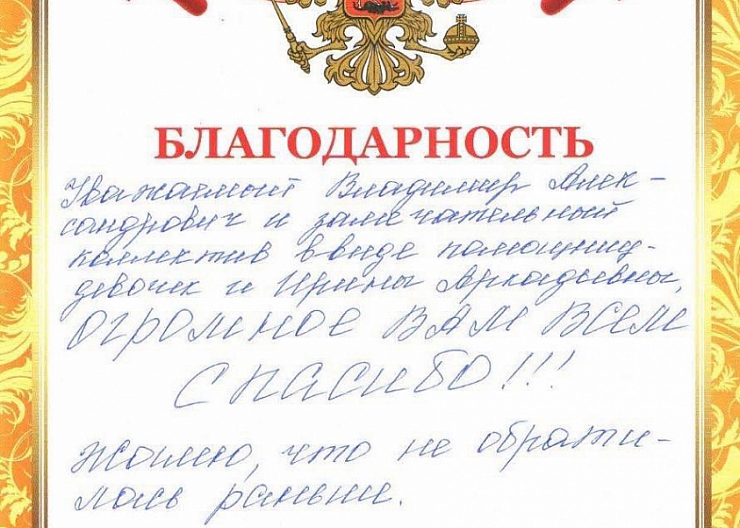 БЛАГОДАРНОСТЬ
Уважаемый Владимир Алек-
сандрович и замечательный
коллектив ввиде помощниц-
девочек и Ирины Аркадьевны,
ОГРОМНОЕ ВАМ ВСЕМ
СПАСИБО!!!
Жалею, что не обрати-
лась раньше.